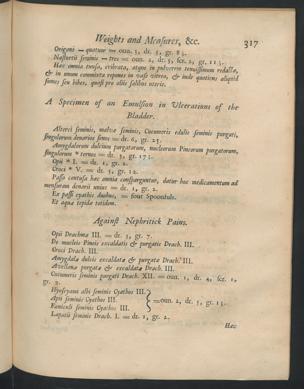 Weights and Measures, &c. 317
Origani — quatuor = oun. 5, dr. 5, gr. 8
Nasturtii seminis — tres = oun. 2, dr. 5, scr. 2, gr. 11
Hæc omnia tunsa, cribrata, atque in pulverem tenuissimum redacta,
& in unum commixta repones in vase vitreo, & inde quoties aliquid
sumes seu bibes, quasi pro aliis salibus uteris.
A Specimen of an Emulsion in Ulcerations of the
Bladder.
Alterci seminis, malvæ seminis, Cucumeris edulis seminis purgati,
singulorum denarios senos = dr. 6, gr. 25.
Amygdalorum dulcium purgatorum, nucleorum Pineorum purgatorum,
singulorum * ternos = dr. 3, gr. 17
Opii * I. = dr. 1, gr. 2.
Croci * V. = dr. 5, gr. 12.
Passo contusa hæc omnia consparguntur, datur hoc medicamentum ad
mensuram denarii unius = dr. 1, gr. 2.
Ex passi cyathis duobus, = four Spoonfuls.
Et aqua tepida totidem.
Against Nephritick Pains.
Opii Drachmæ III. = dr. 3, gr. 7.
De nucleis Pineis excaldatis & purgatis Drach. III.
Croci Drach. III.
Amygdala dulcis excaldata & purgata Drach. III.
Avellana purgata & excaldata Drach. III.
Cucumeris seminis purgati Drach. XII. = oun. 1, dr. 4, scr. 1,
gr. 2.
Hyoscyami albi seminis Cyathos III.
Apii seminis Cyathos III. = oun. 2, dr. 5, gr. 15
Fœniculi seminis Cyathos III.
Lapatii seminis Drach. I. = dr. 1, gr. 2.
Hæc